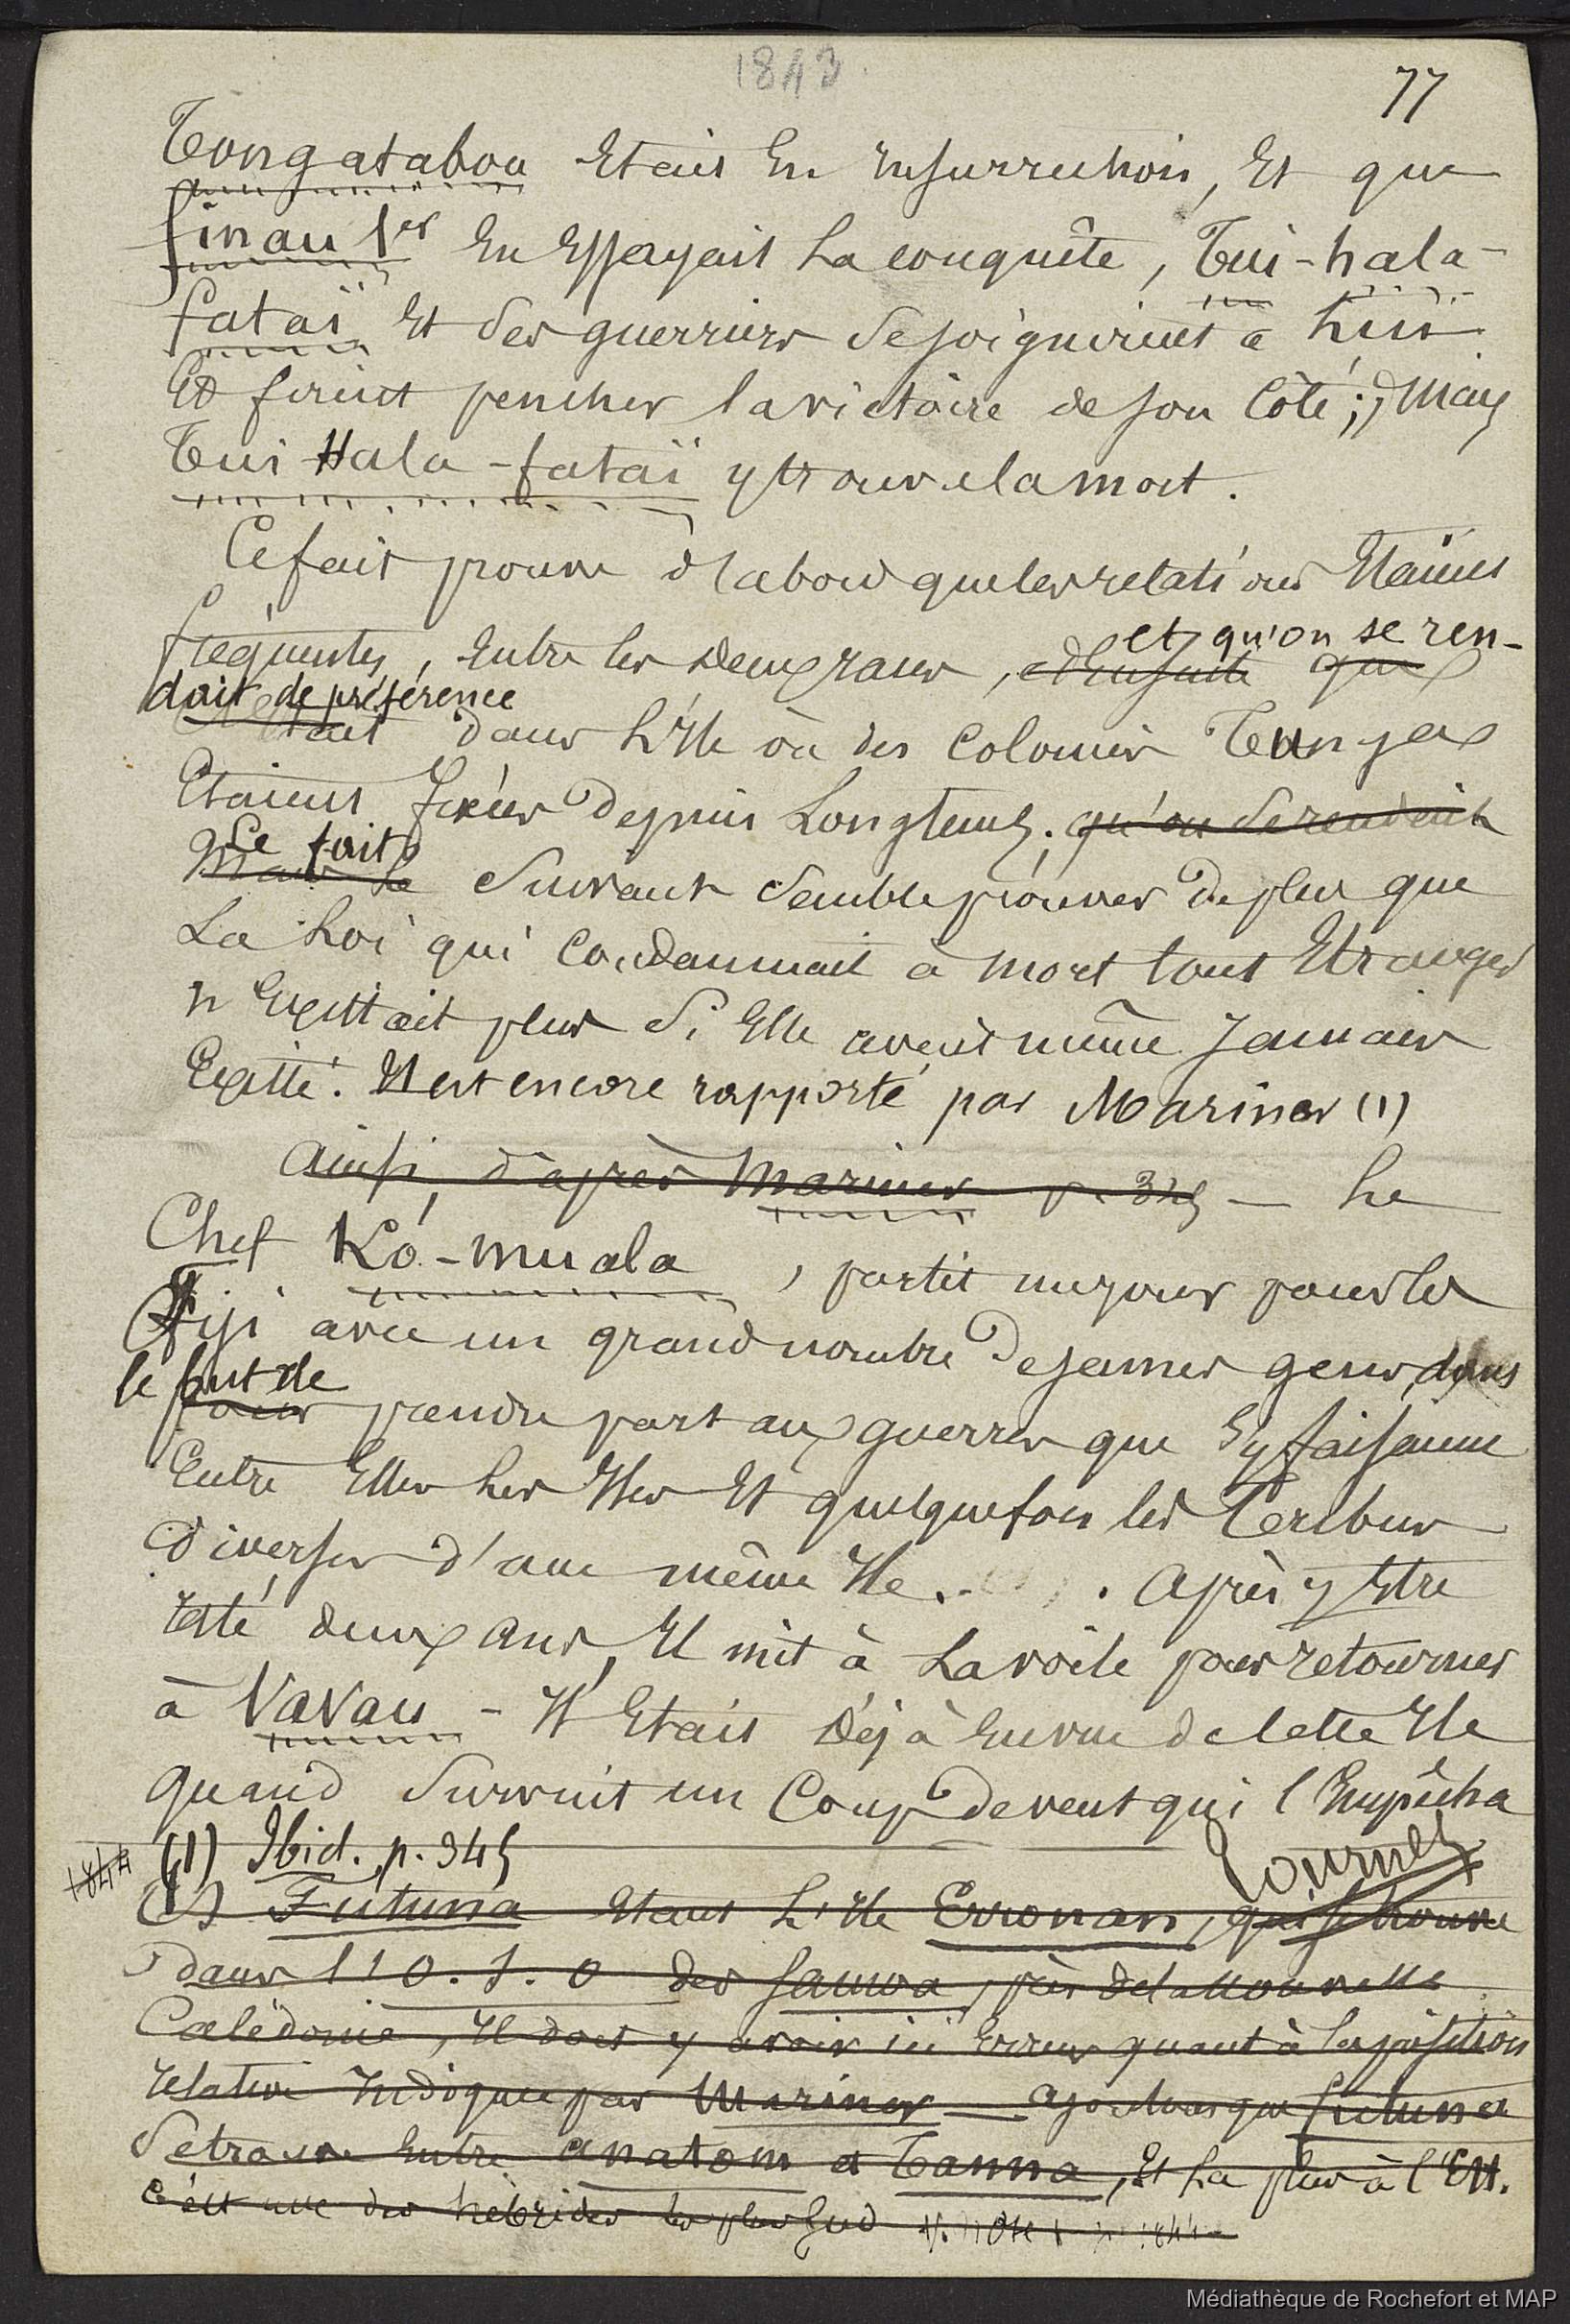 1843
77
Tongatabou était en insurrection, et que
finau 1er en essayait la conquête, Tui-hala-
fataï et des guerriers se joignirent à lui
et firent pencher la victoire de son côté; mais
Tui Hala-fataï y trouva la mort.
Ce fait prouve d'abord que les relations étaient
fréquentes, entre les deux races, ensuite que et qu'on se ren-
dait de préférence
dans l'île où des colonies Tunga
étaient fixées depuis longtemps. qu'on se rendait
Le fait
Mais le suivant semble prouver de plus que
la loi qui condamnait à mort tout étranger
n'existait plus si elle avait même jamais
existé. Il est encore rapporté par Mariner (1)
Ainsi, d'après Mariner p. 345 — Le
Chef Kó-muala, partit un jour pour les
Fiji avec un grand nombre de jeunes gens, dans
le but de
pour prendre part aux guerres que s'y faisaient
entre elles les îles et quelquefois les tribus
diverses d'une même île. . Après y être
resté deux ans, il mit à la voile pour retourner
à Vavau - Il était déjà en vue de cette île
quand survint un coup de vent qui l'empêcha
(1) Ibid. p. 345
1844
Tournez
(1) Futuna étant l'île Erronan, qui se trouve
dans l'O.S.O des Samoa, près de la Nouvelle
Calédonie, il doit y avoir ici erreur quant à la position
relative indiquée par Mariner — ajoutons que futuna
se trouve entre anatom et Tanna, et la plus à l'Est.
c'est une des hébrides les plus sud V. note
Médiathèque de Rochefort et MAP